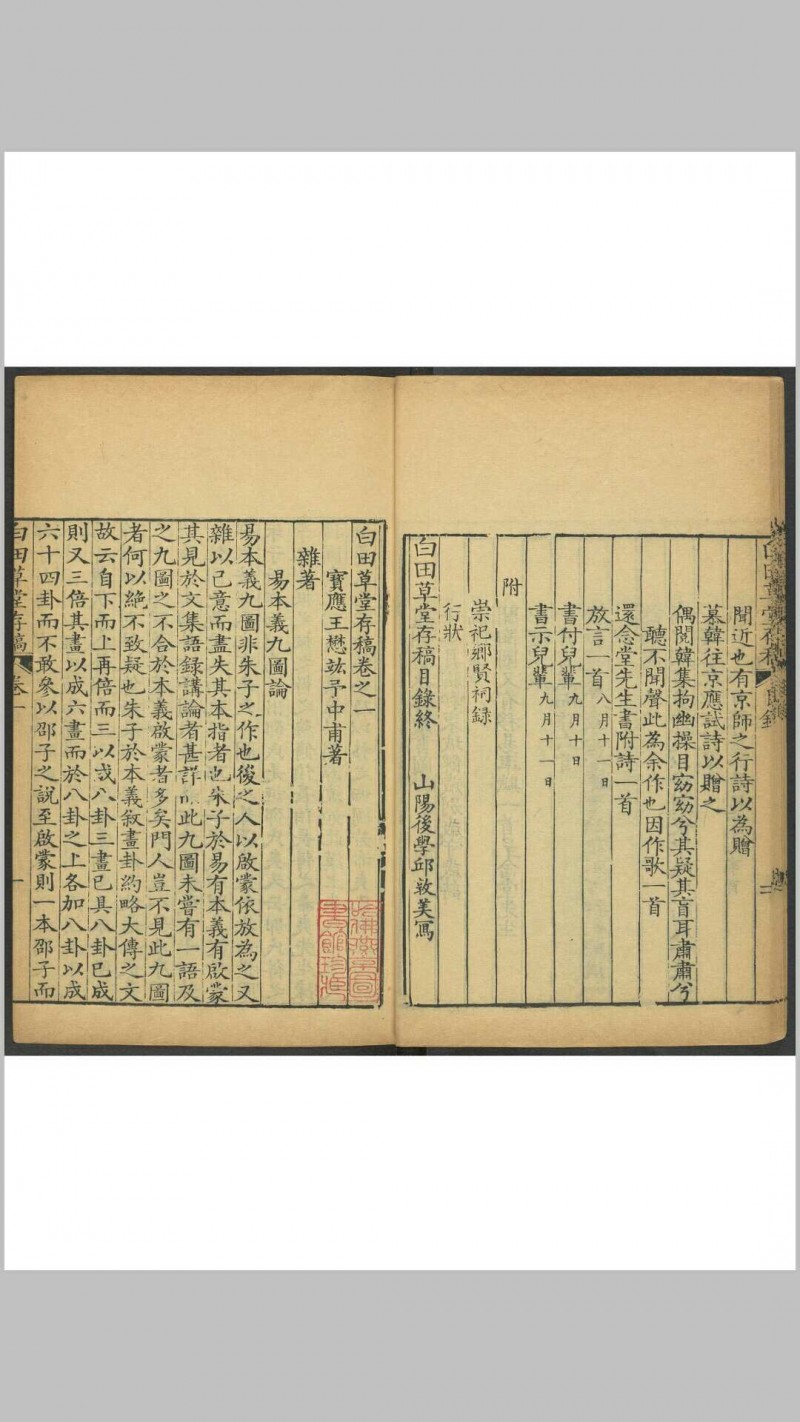 聞近也有京師之行詩以為贈
慕韓往京應試詩以贈之
偶閱韓集拘幽操目窈窈兮其疑其盲耳肅肅兮
聽不聞聲此為余作也因作歌一首
還念堂先生書附詩一首
放言一首八月十一日
書付兒輩九月十日
書示兒輩九月十一日
附
崇祀鄉賢祠録
行狀
白田草堂存稿目錄終 山陽後學邱敦美寫
白田草堂存稿卷之一
寶應王懋竑予中甫著
雜著
易本義九圖論
易本義九圖非朱子之作也後之人以啟蒙依放為之又
雜以己意而盡失其本指者也朱子於易有本義有啟蒙
其見於文集語錄講論者甚詳而此九圖未嘗有一語及
之九圖之不合於本義啟蒙者多矣門人豈不見此九圖
者何以絕不致疑也朱子於本義叙畫卦約略大傳之文
故云自下而上再倍而三以成八卦三畫已具八卦已成
則又三倍其畫以成六畫而於八卦之上各加八卦以成
六十四卦而不敢參以邵子之說至啟蒙則一本邵子而
白田草堂存稿 卷一 一